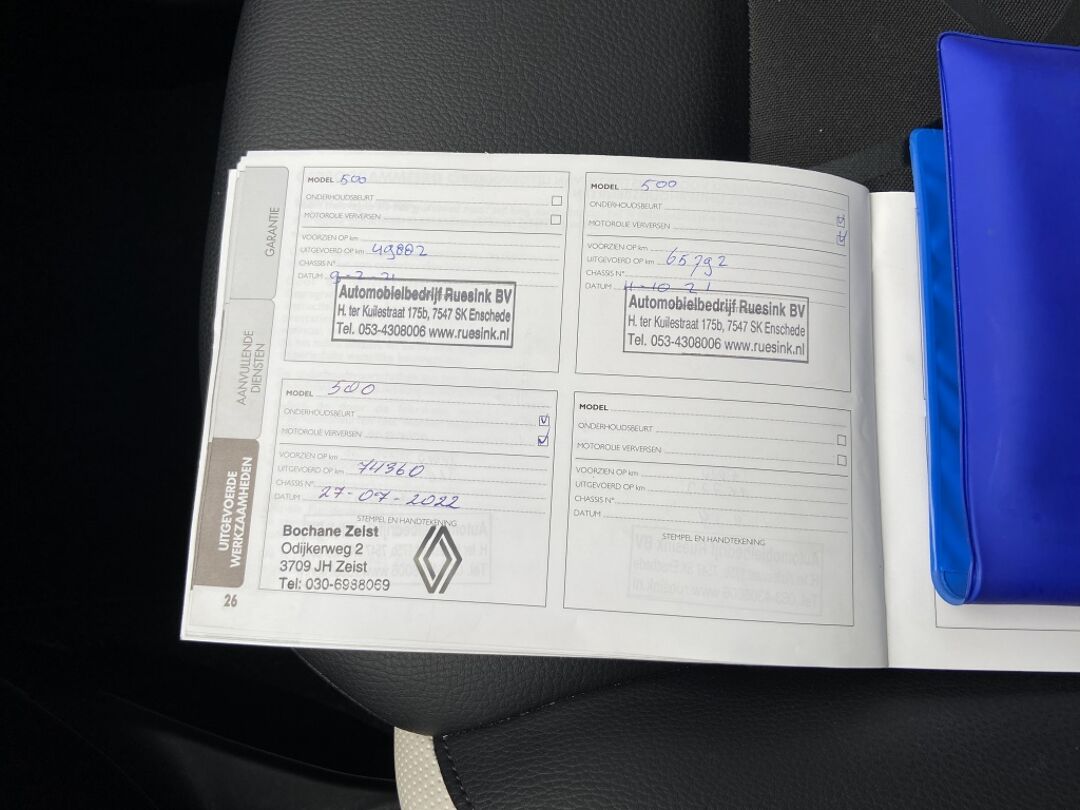 GARANTIE
AANVULLENDE
DIENSTEN
UITGEVOERDE
WERKZAAMHEDEN
26
MODEL 500
ONDERHOUDSBEURT
MOTOROLIE VERVERSEN
VOORZIEN OP km
UITGEVOERD OP km 49882
CHASSIS N°
DATUM 9-2-21
Automobielbedrijf Ruesink BV
H. ter Kuilestraat 175b, 7547 SK Enschede
Tel. 053-4308006 www.ruesink.nl
MODEL 500
ONDERHOUDSBEURT
MOTOROLIE VERVERSEN
VOORZIEN OP km
UITGEVOERD OP km 65792
CHASSIS N°
DATUM 11-10 21
Automobielbedrijf Ruesink BV
H. ter Kuilestraat 175b, 7547 SK Enschede
Tel. 053-4308006 www.ruesink.nl
MODEL 500
ONDERHOUDSBEURT
MOTOROLIE VERVERSEN
VOORZIEN OP km
UITGEVOERD OP km 74360
CHASSIS N°
DATUM 27-07-2022
STEMPEL EN HANDTEKENING
Bochane Zeist
Odijkerweg 2
3709 JH Zeist
Tel: 030-6988069
MODEL
ONDERHOUDSBEURT
MOTOROLIE VERVERSEN
VOORZIEN OP km
UITGEVOERD OP km
CHASSIS N°
DATUM
STEMPEL EN HANDTEKENING